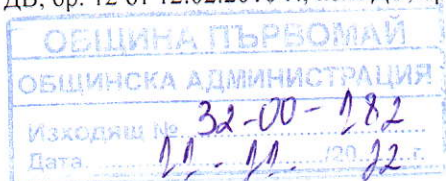 ДВ, бр. 12 от 12.02.20
ОБЩИНА ПЪРВОМАЙ
ОБЩИНСКА АДМИНИСТРАЦИЯ
Изходящ № 32-00-182
Дата 11.11. 2022 г.